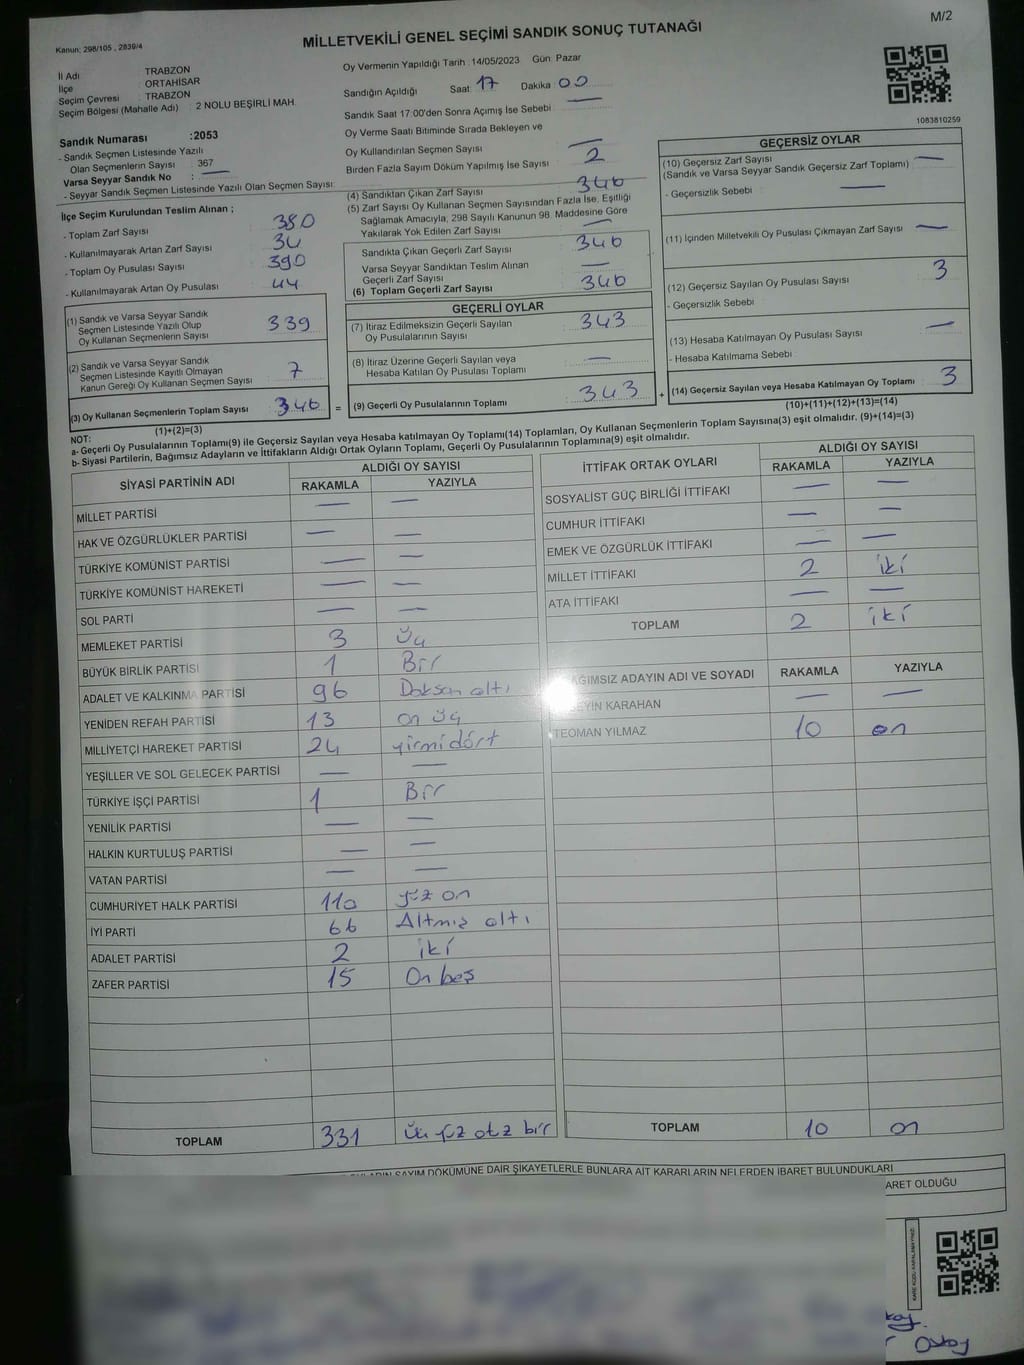 M/2
Kanun: 298/105 , 2839/4
MİLLETVEKİLİ GENEL SEÇİMİ SANDIK SONUÇ TUTANAĞI
İl Adı TRABZON
İlçe ORTAHİSAR
Seçim Çevresi : TRABZON
Seçim Bölgesi (Mahalle Adı) : 2 NOLU BEŞİRLİ MAH.
Sandık Numarası :2053
- Sandık Seçmen Listesinde Yazılı
Olan Seçmenlerin Sayısı : 367
Varsa Seyyar Sandık No : —
- Seyyar Sandık Seçmen Listesinde Yazılı Olan Seçmen Sayısı:
İlçe Seçim Kurulundan Teslim Alınan ;
- Toplam Zarf Sayısı 380
- Kullanılmayarak Artan Zarf Sayısı 34
- Toplam Oy Pusulası Sayısı 390
- Kullanılmayarak Artan Oy Pusulası 44
(1) Sandık ve Varsa Seyyar Sandık
Seçmen Listesinde Yazılı Olup
Oy Kullanan Seçmenlerin Sayısı 339
(2) Sandık ve Varsa Seyyar Sandık
Seçmen Listesinde Kayıtlı Olmayan
Kanun Gereği Oy Kullanan Seçmen Sayısı 7
(3) Oy Kullanan Seçmenlerin Toplam Sayısı 346
(1)+(2)=(3)
Oy Vermenin Yapıldığı Tarih : 14/05/2023 Gün: Pazar
Sandığın Açıldığı Saat: 17 Dakika: 00
Sandık Saat 17:00'den Sonra Açımış İse Sebebi : —
Oy Verme Saati Bitiminde Sırada Bekleyen ve
Oy Kullandırılan Seçmen Sayısı —
Birden Fazla Sayım Döküm Yapılmış İse Sayısı 2
(4) Sandıktan Çıkan Zarf Sayısı 346
(5) Zarf Sayısı Oy Kullanan Seçmen Sayısından Fazla İse, Eşitliği
Sağlamak Amacıyla, 298 Sayılı Kanunun 98. Maddesine Göre
Yakılarak Yok Edilen Zarf Sayısı —
Sandıkta Çıkan Geçerli Zarf Sayısı 346
Varsa Seyyar Sandıktan Teslim Alınan
Geçerli Zarf Sayısı —
(6) Toplam Geçerli Zarf Sayısı 346
GEÇERLİ OYLAR
(7) İtiraz Edilmeksizin Geçerli Sayılan
Oy Pusulalarının Sayısı 343
(8) İtiraz Üzerine Geçerli Sayılan veya
Hesaba Katılan Oy Pusulası Toplamı —
= (9) Geçerli Oy Pusulalarının Toplamı 343 +
1083810259
GEÇERSİZ OYLAR
(10) Geçersiz Zarf Sayısı —
(Sandık ve Varsa Seyyar Sandık Geçersiz Zarf Toplamı)
- Geçersizlik Sebebi : —
(11) İçinden Milletvekili Oy Pusulası Çıkmayan Zarf Sayısı —
(12) Geçersiz Sayılan Oy Pusulası Sayısı 3
- Geçersizlik Sebebi :
(13) Hesaba Katılmayan Oy Pusulası Sayısı —
- Hesaba Katılmama Sebebi :
(14) Geçersiz Sayılan veya Hesaba Katılmayan Oy Toplamı 3
(10)+(11)+(12)+(13)=(14)
NOT:
a- Geçerli Oy Pusulalarının Toplamı(9) ile Geçersiz Sayılan veya Hesaba katılmayan Oy Toplamı(14) Toplamları, Oy Kullanan Seçmenlerin Toplam Sayısına(3) eşit olmalıdır. (9)+(14)=(3)
b- Siyasi Partilerin, Bağımsız Adayların ve İttifakların Aldığı Ortak Oyların Toplamı, Geçerli Oy Pusulalarının Toplamına(9) eşit olmalıdır.
SİYASİ PARTİNİN ADI ALDIĞI OY SAYISI
RAKAMLA YAZIYLA
MİLLET PARTİSİ — —
HAK VE ÖZGÜRLÜKLER PARTİSİ — —
TÜRKİYE KOMÜNİST PARTİSİ — —
TÜRKİYE KOMÜNİST HAREKETİ — —
SOL PARTİ — —
MEMLEKET PARTİSİ 3 Üç
BÜYÜK BİRLİK PARTİSİ 1 Bir
ADALET VE KALKINMA PARTİSİ 96 Doksan altı
YENİDEN REFAH PARTİSİ 13 on üç
MİLLİYETÇİ HAREKET PARTİSİ 24 yirmi dört
YEŞİLLER VE SOL GELECEK PARTİSİ — —
TÜRKİYE İŞÇİ PARTİSİ 1 Bir
YENİLİK PARTİSİ — —
HALKIN KURTULUŞ PARTİSİ — —
VATAN PARTİSİ — —
CUMHURİYET HALK PARTİSİ 110 yüz on
İYİ PARTİ 66 Altmış altı
ADALET PARTİSİ 2 iki
ZAFER PARTİSİ 15 On beş
TOPLAM 331 üç yüz otz bir
İTTİFAK ORTAK OYLARI ALDIĞI OY SAYISI
RAKAMLA YAZIYLA
SOSYALİST GÜÇ BİRLİĞİ İTTİFAKI — —
CUMHUR İTTİFAKI — —
EMEK VE ÖZGÜRLÜK İTTİFAKI — —
MİLLET İTTİFAKI 2 iki
ATA İTTİFAKI — —
TOPLAM 2 iki
AĞIMSIZ ADAYIN ADI VE SOYADI RAKAMLA YAZIYLA
EYİN KARAHAN — —
TEOMAN YILMAZ 10 on
TOPLAM 10 on
SAYIM DÖKÜMÜNE DAİR ŞİKAYETLERLE BUNLARA AİT KARARLARIN NELERDEN İBARET BULUNDUKLARI
ARET OLDUĞU